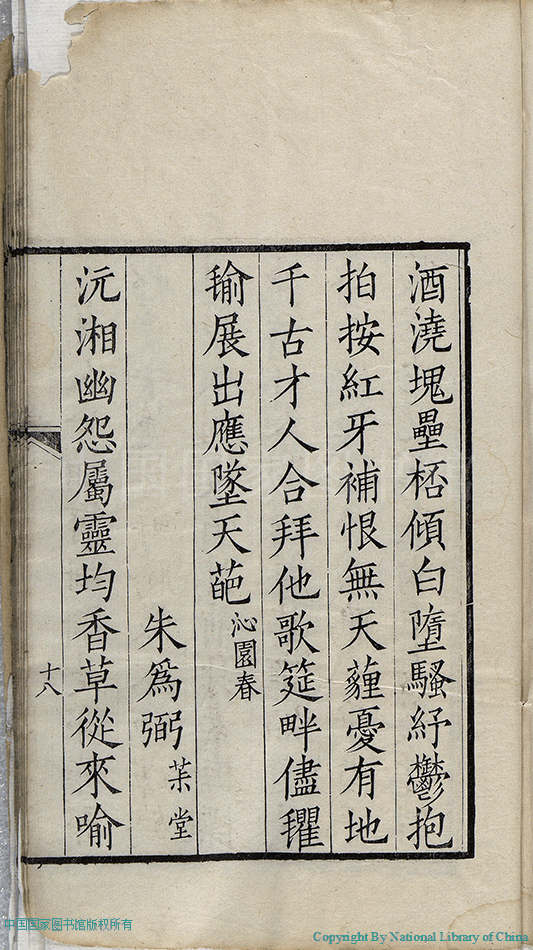 酒澆塊壘桮傾白墮騷紓鬱抱
拍按紅牙補恨無天薶憂有地
千古才人合拜他歌筵畔儘瓃
瑜展出應墜天葩沁園春
朱爲弼茮堂
沅湘幽怨屬靈均香草從來喻
十八
中国国家图书馆版权所有
Copyright By National Library of China